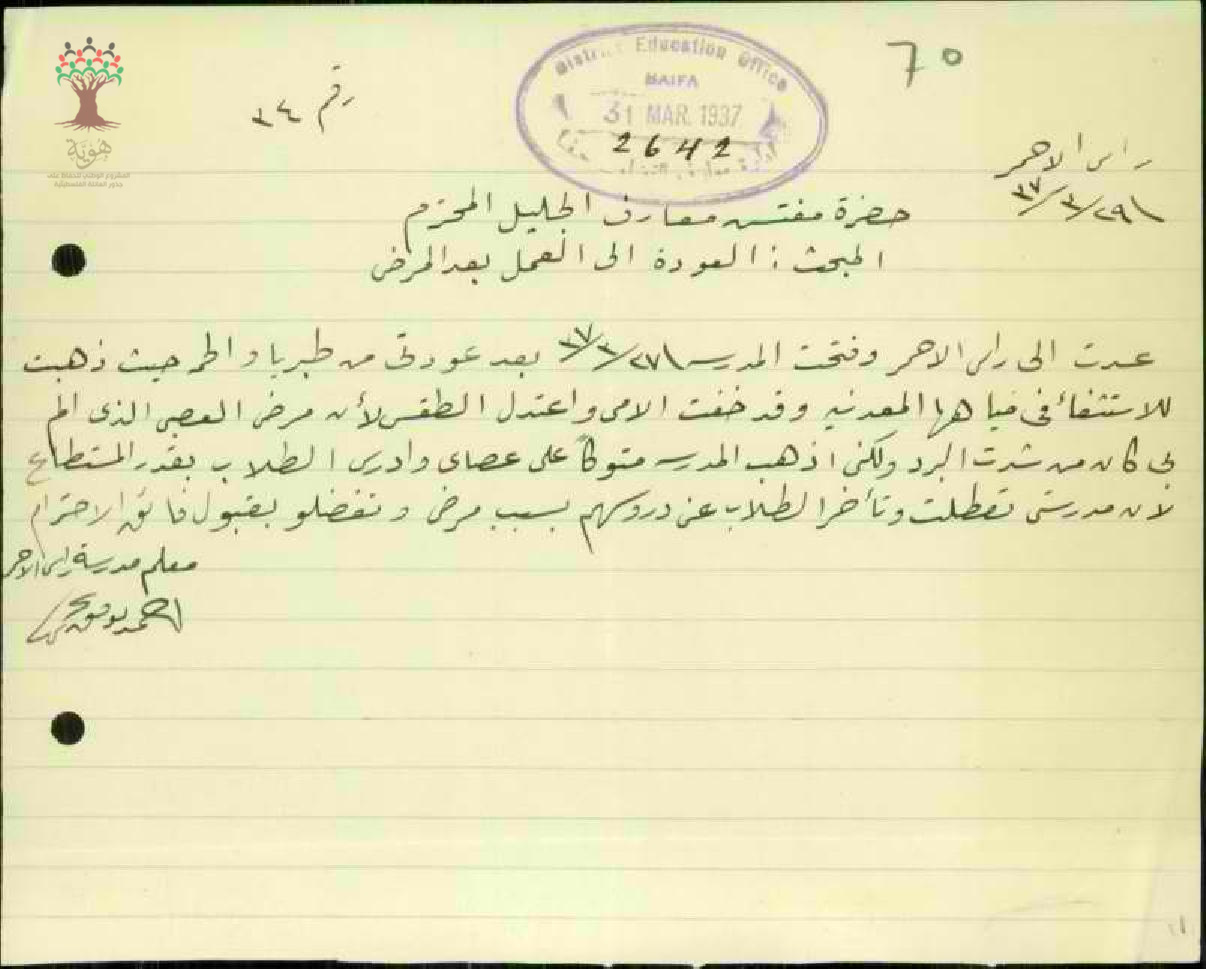 70
District Education Office
HAIFA
31 MAR. 1937
2642
رقم ٣٤
هوية
المشروع الوطني للحفاظ على
جذور العائلة الفلسطينية
راس الاحمر
٢٩/٣/٣٧
حضرة مفتش معارف الجليل المحترم
المبحث : العودة الى العمل بعد المرض
عدت الى راس الاحمر وفتحت المدرسه ٢٧/٣/٣٧ بعد عودتي من طبريا و الحمه حيث ذهبت
للاستشفاء في مياهها المعدنيه وقد خفت الامي واعتدل الطقس لأن مرض العصبي الذي الم
بي كان من شدت البرد ولكني اذهب المدرسه متوكأ على عصاي وادرس الطلاب بقدر المستطاع
لان مدرستي تعطلت وتأخر الطلاب عن دروسهم بسبب مرضي و تفضلو بقبول فائق الاحترام
معلم مدرسة راس الاحمر
احمد